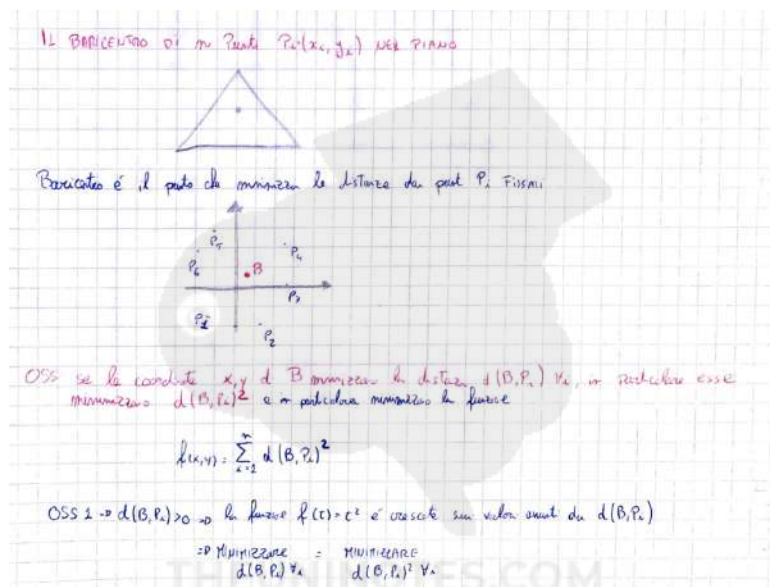 IL BARICENTRO DI n Punti Pi(xi, yi) NEL PIANO
Baricentro é il punto che minimizza le distanze dai punti Pi FISSATI
P5
P6
B
P4
P3
P1
P2
OSS se le coordinate x,y di B minimizzano la distanza d(B,Pi) ∀i, in particolare esse
minimizzano d(B,Pi)2 e in particolare minimizzano la funzione
f(x,y) = Σ d(B,Pi)2
OSS 1 → d(B,Pi)>0 → la funzione f(t)=t2 é crescente sui valori assunti da d(B,Pi)
⇒ MINIMIZZARE = MINIMIZZARE
d(B,Pi) ∀i d(B,Pi)2 ∀i